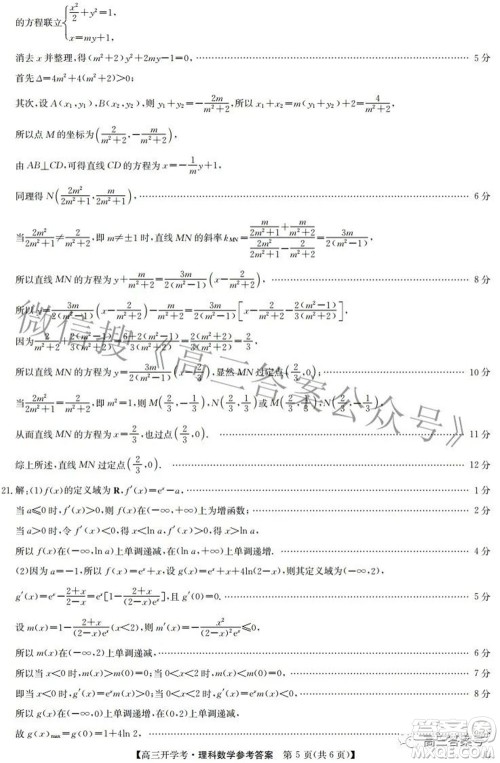 的方程联立{x²/2+y²=1, x=my+1,
消去 x 并整理,得(m²+2)y²+2my-1=0, 5分
首先 Δ=4m²+4(m²+2)>0;
其次,设 A(x₁,y₁),B(x₂,y₂),则 y₁+y₂=-2m/(m²+2),所以 x₁+x₂=m(y₁+y₂)+2=4/(m²+2),
所以点 M 的坐标为(2/(m²+2),-m/(m²+2)).
由 AB⊥CD,可得直线 CD 的方程为 x=-(1/m)y+1,
同理得 N(2m²/(2m²+1),m/(2m²+1)), 6分
当2m²/(2m²+1)≠2/(m²+2),即 m≠±1 时,直线 MN 的斜率 k_MN=(m/(2m²+1)+m/(m²+2))/(2m²/(2m²+1)-2/(m²+2))=3m/(2(m²-1)),
所以直线 MN 的方程为 y+m/(m²+2)=3m/(2(m²-1))(x-2/(m²+2)), 8分
所以 y=3m/(2(m²-1))(x-2/(m²+2))-m/(m²+2)=3m/(2(m²-1))[x-2/(m²+2)-2(m²-1)/
因为2/(m²+2)+2(m²-1)/
所以直线 MN 的方程为 y=3m/(2(m²-1))(x-2/3),显然 MN 过定点(2/3,0); 10分
当2m²/(2m²+1)=2/(m²+2),即 m²=1,则 M(2/3,-1/3),N(2/3,1/3)或 M(2/3,1/3),
从而直线 MN 的方程为 x=2/3,也过点(2/3,0). 11分
综上所述,直线 MN 过定点(2/3,0). 12分
21.解:(1)f(x)的定义域为 R,f′(x)=eˣ-a, 1分
当 a≤0 时,f′(x)>0,则 f(x)在(-∞,+∞)上为增函数; 2分
当 a>0 时,令 f′(x)<0,得 x<ln a,f′(x)>0,得 x>ln a,
所以 f(x)在(-∞,ln a)上单调递减,在(ln a,+∞)上单调递增. 4分
(2)因为 a=-1,所以 f(x)=eˣ+x,设 g(x)=eˣ+x+4ln(2-x),则其定义域为(-∞,2).
g′(x)=eˣ-(2+x)/(2-x)=eˣ[1-(2+x)/((2-x)eˣ)],且 g′(0)=0. 5分
设 m(x)=1-(2+x)/((2-x)eˣ)(x<2),则 m′(x)=-x²/((2-x)²eˣ)≤0,
所以 m(x)在(-∞,2)上单调递减, 6分
所以当 x<0 时,m(x)>m(0)=0;当 0<x<2 时,m(x)<m(0)=0, 7分
即当 x<0 时,g′(x)=eˣm(x)>0;当 0<x<2 时,g′(x)=eˣm(x)<0, 8分
所以 g(x)在(-∞,0)上单调递增,在(0,2)上单调递减,
故 g(x)max=g(0)=1+4ln 2.
【高三开学考·理科数学参考答案 第 5 页(共 6 页)】
微信搜《高三答案公众号》